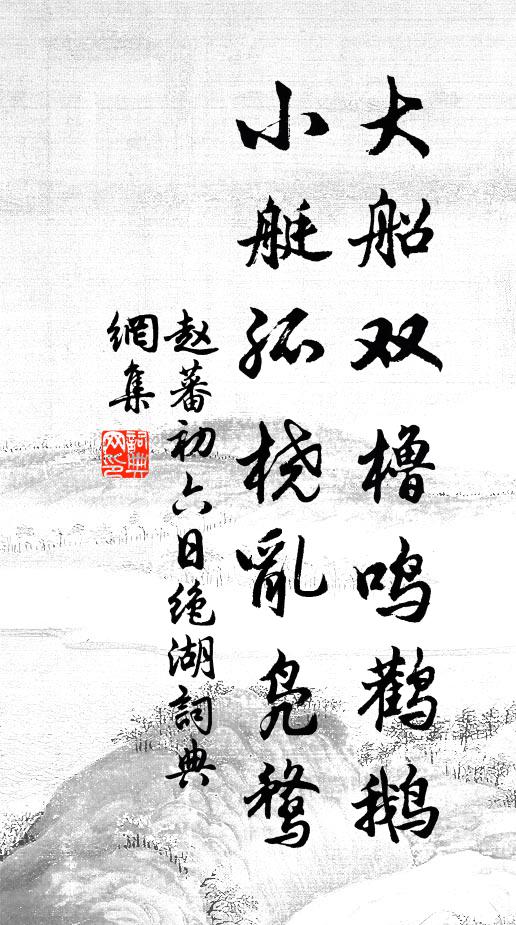 大船双橹鸣鹳鹅
小艇孤桡亂凫鹜
赵蕃初六日绝湖詞典
網集
詞典网印